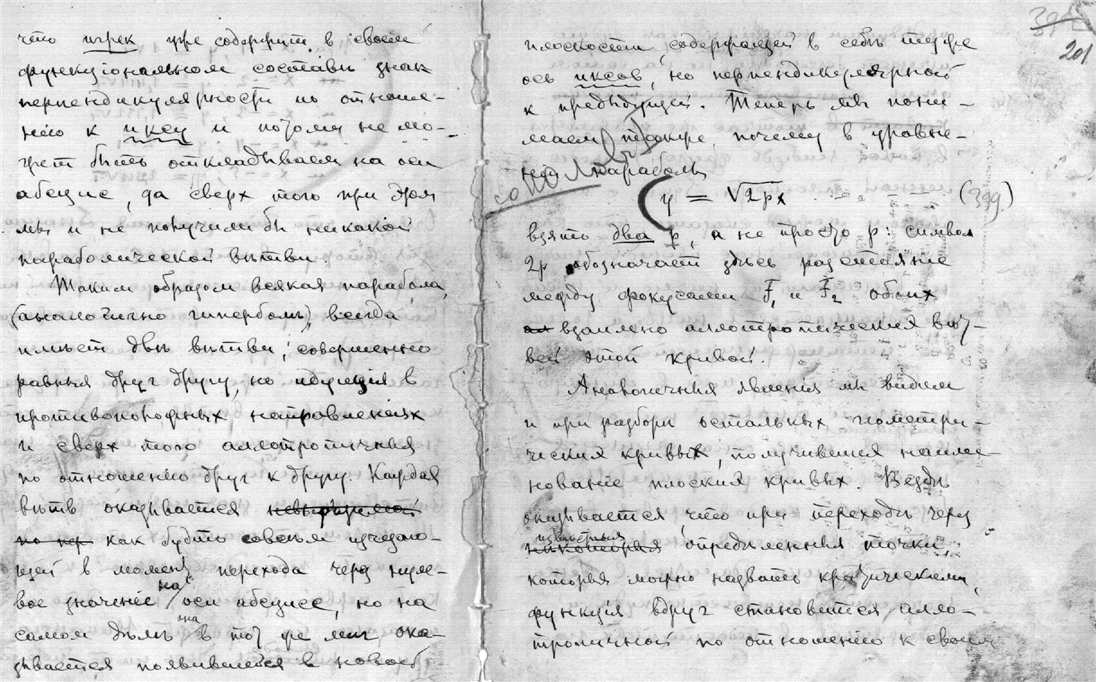 что игрек уже содержит в своем
функціональном составѣ знак
перпендикулярности по отноше-
нію к иксу и потому не мо-
жет быть откладываем на оси
абсцисс, да сверх того при этом
мы и не получили бы никакой
параболической вѣтви.
Таким образом всякая парабола,
(аналогично гиперболѣ), всегда
имѣет двѣ вѣтви, совершенно
равныя друг другу, но идущія в
противоположных направленіях
и сверх того аллотропичныя
по отношенію друг к другу. Каждая
вѣтвь оказывается
как будто совсѣм изчезаю-
щей в момент перехода через нуле-
вое значеніе на оси абсцисс, но на
самом дѣлѣ она в тот же миг ока-
зывается появившейся в новой
201
плоскости содержащей в себѣ туже
ось иксов, но перпендикулярной
к предыдущей. Теперь мы пони-
маем также, почему в уравне-
ніи параболы
y = √2px (399)
взято два p, а не просто p: символ
2p обозначает здѣсь разстояніе
между фокусами F₁ и F₂ обоих
взаимно аллотропическия вѣт-
вей этой кривой.
Аналогичныя явленія мы видим
и при разборѣ остальных геометри-
ческия кривых, получившия наиме-
нованіе плоския кривых. Вездѣ
оказывается, что при переходѣ через
извѣстныя
некоторыя опредѣленныя точки,
которыя можно назвать критическими,
функція вдруг становится алло-
тропичной по отношенію к своей